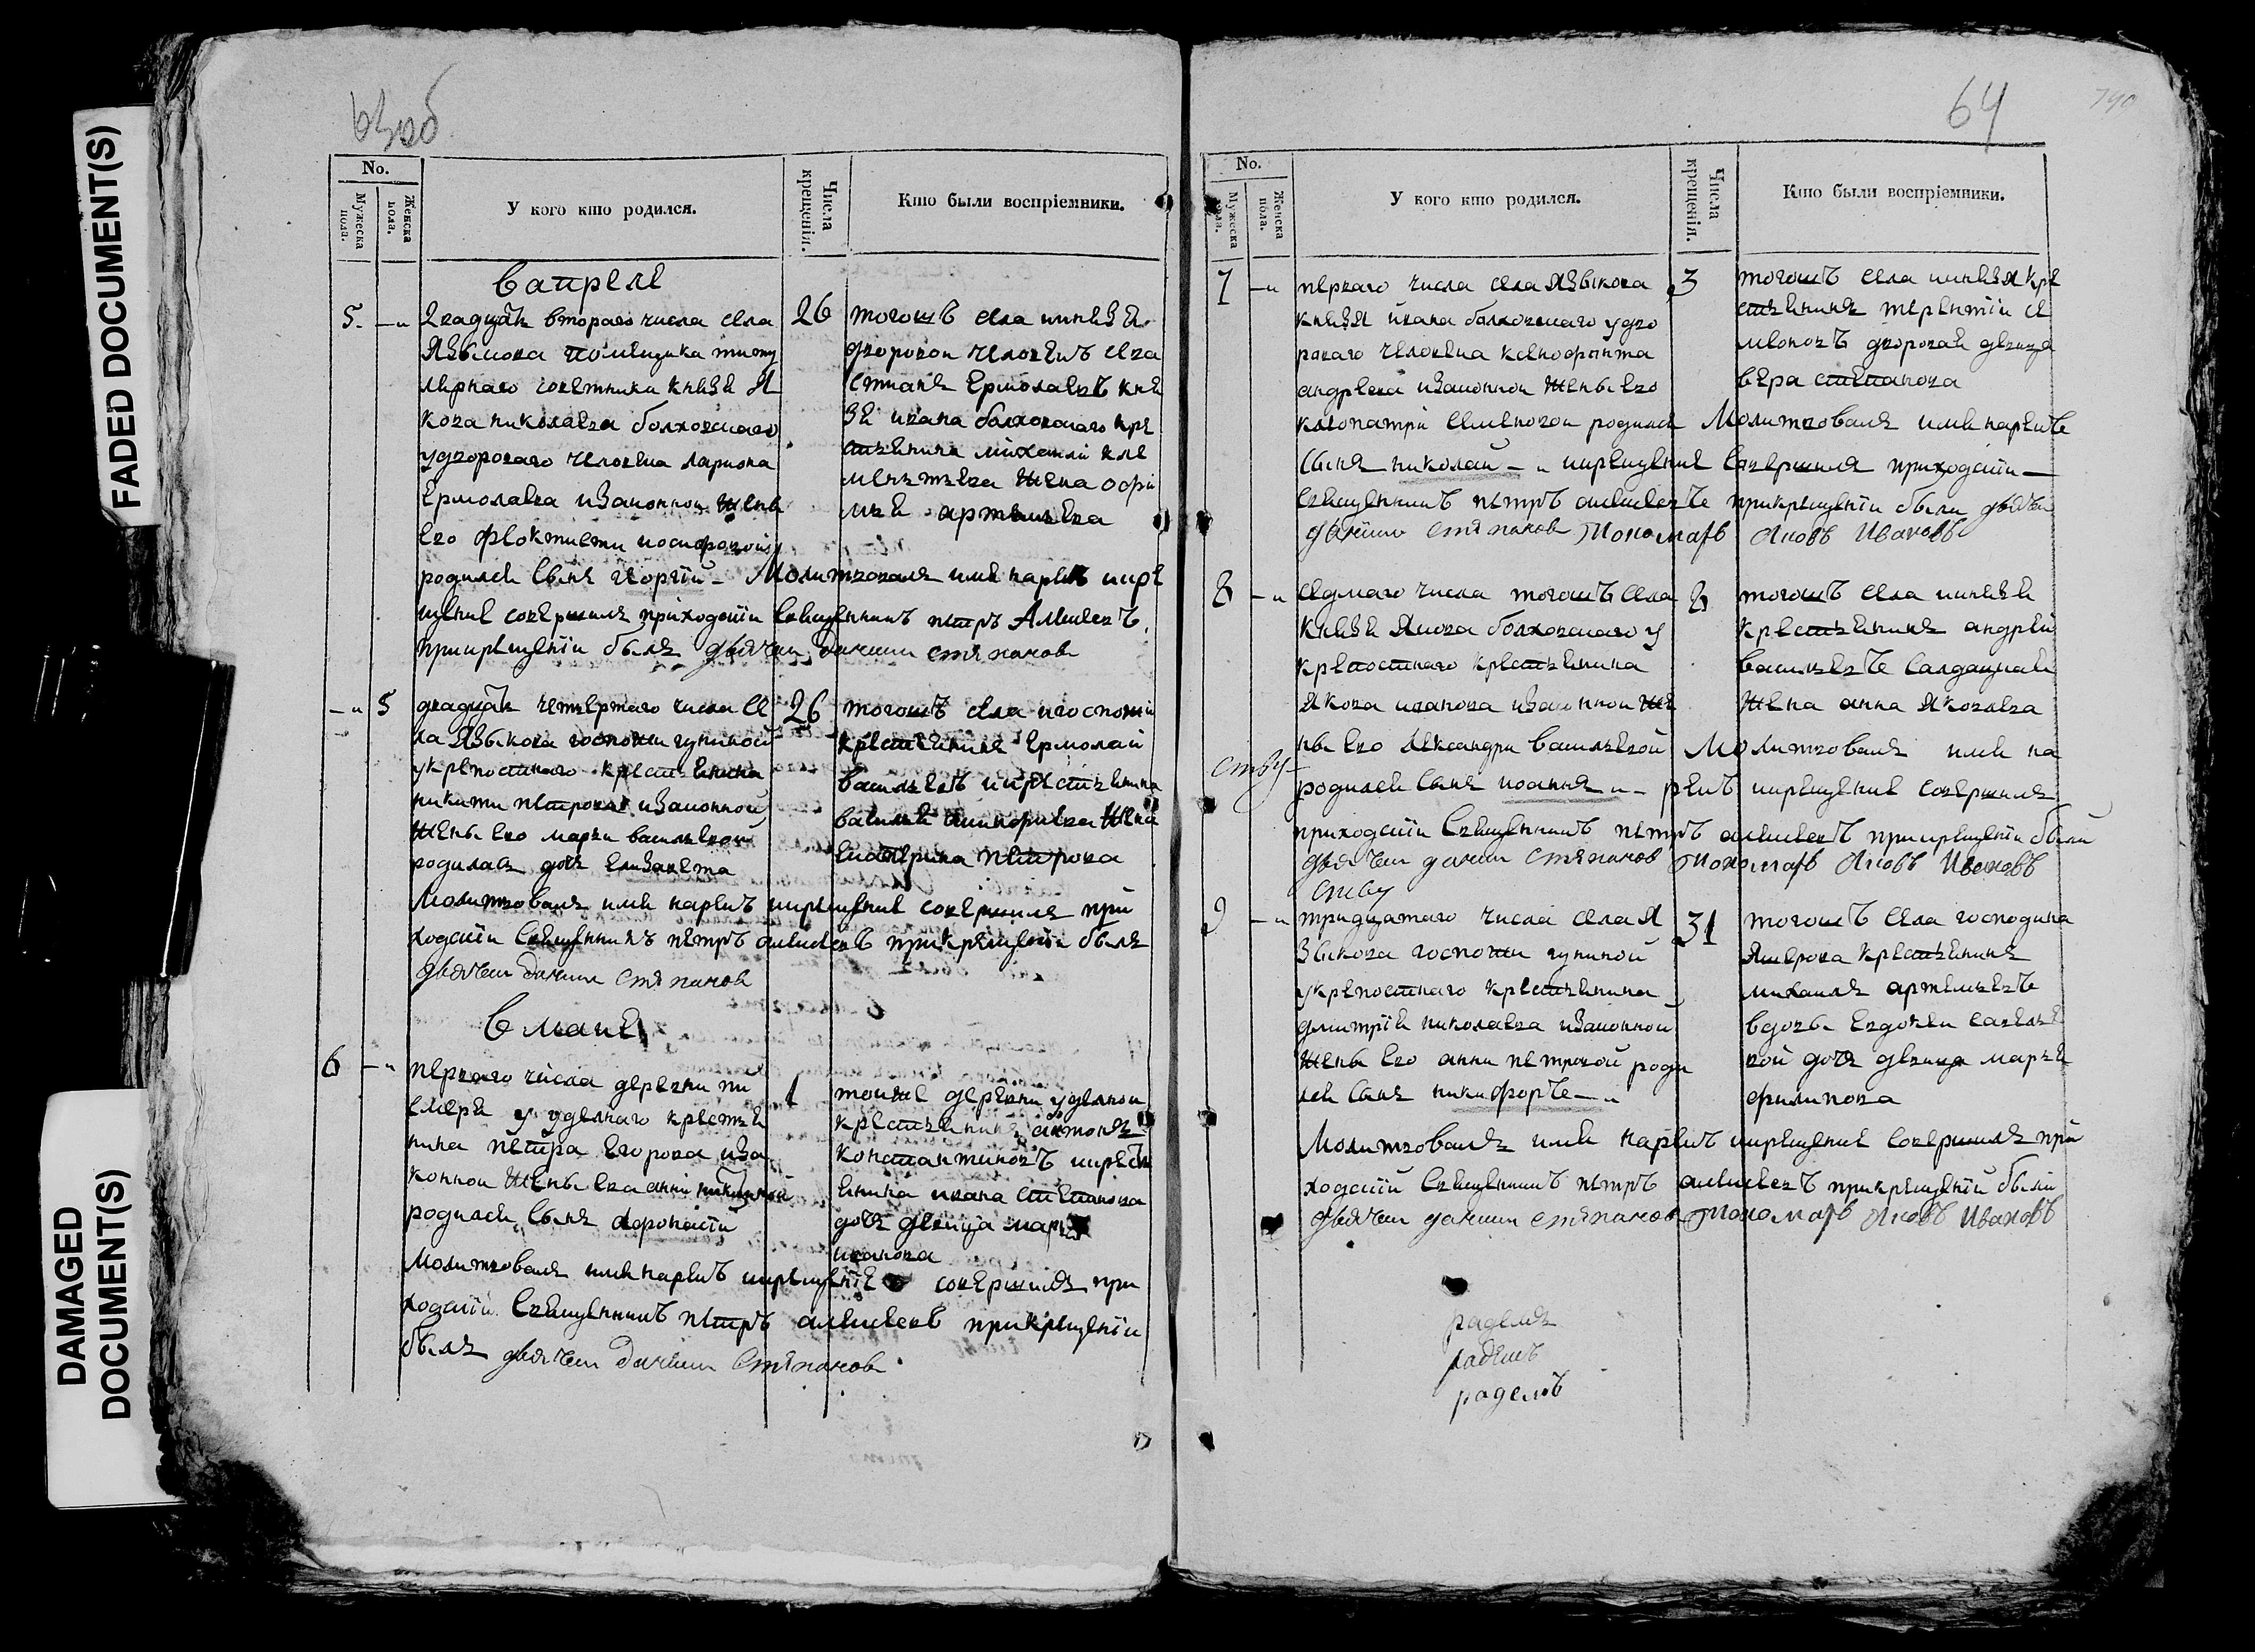 FADED DOCUMENT(S)
DAMAGED DOCUMENT(S)
63 об
No.
Мужеска пола.
Женска пола.
У кого кто родился.
Числа крещенія.
Кто были воспріемники.
в апреле
5. — „ 2вадцать втораго числа села
Языкова помещика титу
лярнаго советника князя Я
кова николаева болховскаго
у дворового человека лариона
ермолаева и законной жены
его феоктисты иосифовой
родился сынъ георгій — Молитвовалъ имя нарекъ и кре
щеніе совершилъ приходскій священникъ петръ Алексеевъ
при крещеніи былъ дьячекъ данилъ степановъ
26
тогожъ села и князя
дворовой человекъ сева
стианъ ермолаевъ кня
зя ивана болховскаго кре
стьянина михаилы кле
ментьева жена офи
мья артемьева
— „ 5 двадцать четвертаго числа се
ла Языкова госпожи гуниной
у крепостнаго крестьянина
никиты петрова и законной
жены его марьи васильевой
родилась дочь елизавета
Молитвовалъ имя нарекъ и крещеніе совершилъ при
ходскій священникъ петръ алексеевъ при крещеніи былъ
дьячекъ данилъ степановъ
26
тогожъ села и госпожи
крестьянинъ ермолай
васильевъ и крестьянина
василья жена
екатерина петрова
в маие
6 — „ перваго числа деревни
у удельнаго крестья
нина петра егорова и за
конной жены ева анны никитиной
родился сынъ афонасій
Молитвовалъ имя нарекъ и крещеніе совершилъ при
ходскій священникъ петръ алексеевъ при крещеніи
былъ дьячекъ данилъ степановъ
1
тойже деревни удельной
крестьянинъ антонъ
константиновъ и кресть
янина ивана степанова
дочь девица марья
иванова
64
790
No.
Мужеска пола.
Женска пола.
У кого кто родился.
Числа крещенія.
Кто были воспріемники.
7 — „ перваго числа села Языкова
князя ивана болховскаго у дво
рового человека ксенофонта
андреева и законной жены его
клеопатры семеновой родился Молитвовалъ имя нарекъ
сынъ николай — „ и крещеніе совершилъ приходскій —
священникъ петръ алексеевъ при крещеніи были дьячекъ
данило степановъ Пономарь Яковъ Ивановъ
3
тогожъ села и князя кре
стьянинъ терентій се
меновъ дворовая девица
вера степанова
8 — „ седмаго числа тогожъ села
князя Якова болховскаго у
крепостнаго крестьянина
Якова иванова и законной же
ны его александры васильевой Молитвовалъ имя на
родился сынъ иоаннъ „ — рекъ и крещеніе совершилъ
приходскій священникъ петръ алексеевъ при крещеніи были
дьячекъ данилъ степановъ Пономарь Яковъ Ивановъ
8
тогожъ села и князя
крестьянинъ андрей
васильевъ салдацкая
жена анна Яковлева
9 — „ тридцатаго числа села Я
зыкова госпожи гуниной
у крепостнаго крестьянина
дмитрія николаева и законной
жены его анны петровой роди
лся сынъ никифоръ — „
31
тогожъ села господина
крестьянинъ
михаилъ артемьевъ
вдовы евдокеи савелье
вой дочь девица марья
филипова
Молитвовалъ имя нарекъ и крещеніе совершилъ при
ходскій священникъ петръ алексеевъ при крещеніи были
дьячекъ данилъ степановъ Пономарь Яковъ Ивановъ